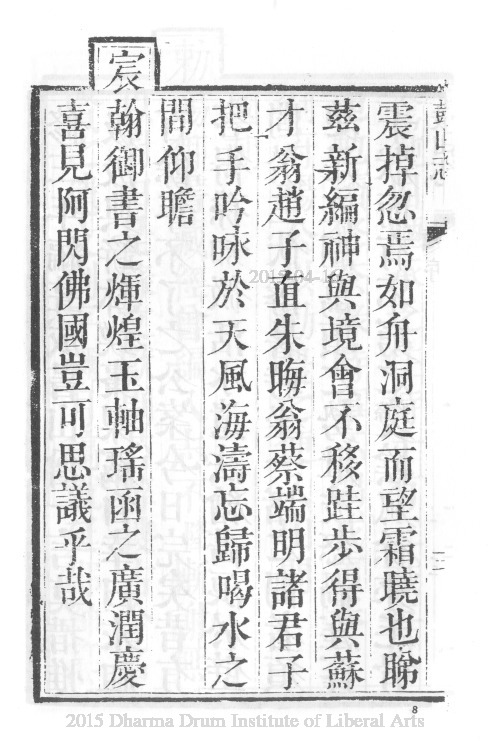 鼓山志
震掉忽焉如舟洞庭而望霜曉也睇
茲新編神與境會不移跬步得與蘇
才翁趙子直朱晦翁蔡端明諸君子
把手吟咏於天風海濤忘歸喝水之
間仰瞻
宸翰御書之煇煌玉軸瑤函之廣潤慶
喜見阿閦佛國豈可思議乎哉
8
2015 Dharma Drum Institute of Liberal Arts